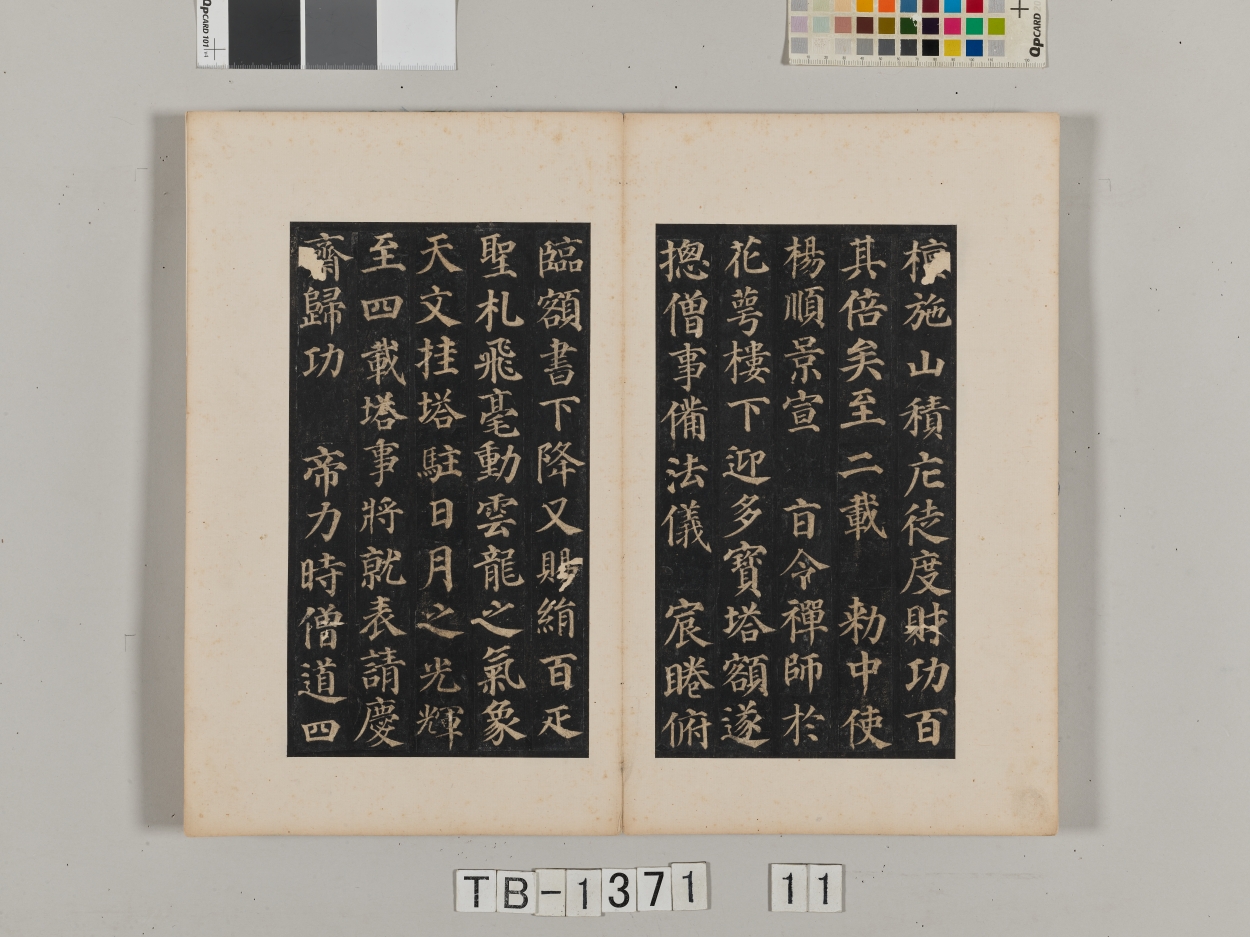 檀施山積庀徒度財功百
其倍矣至二載　勑中使
楊順景宣　㫖令禪師於
花蕚樓下迎多寶塔額遂
揔僧事備法儀　宸睠俯
臨額書下降又賜絹百疋
聖札飛毫動雲龍之氣象
天文挂塔駐日月之光輝
至四載塔事將就表請慶
齊歸功　帝力時僧道四
QPCARD 101
QPCARD
TB-1371 11